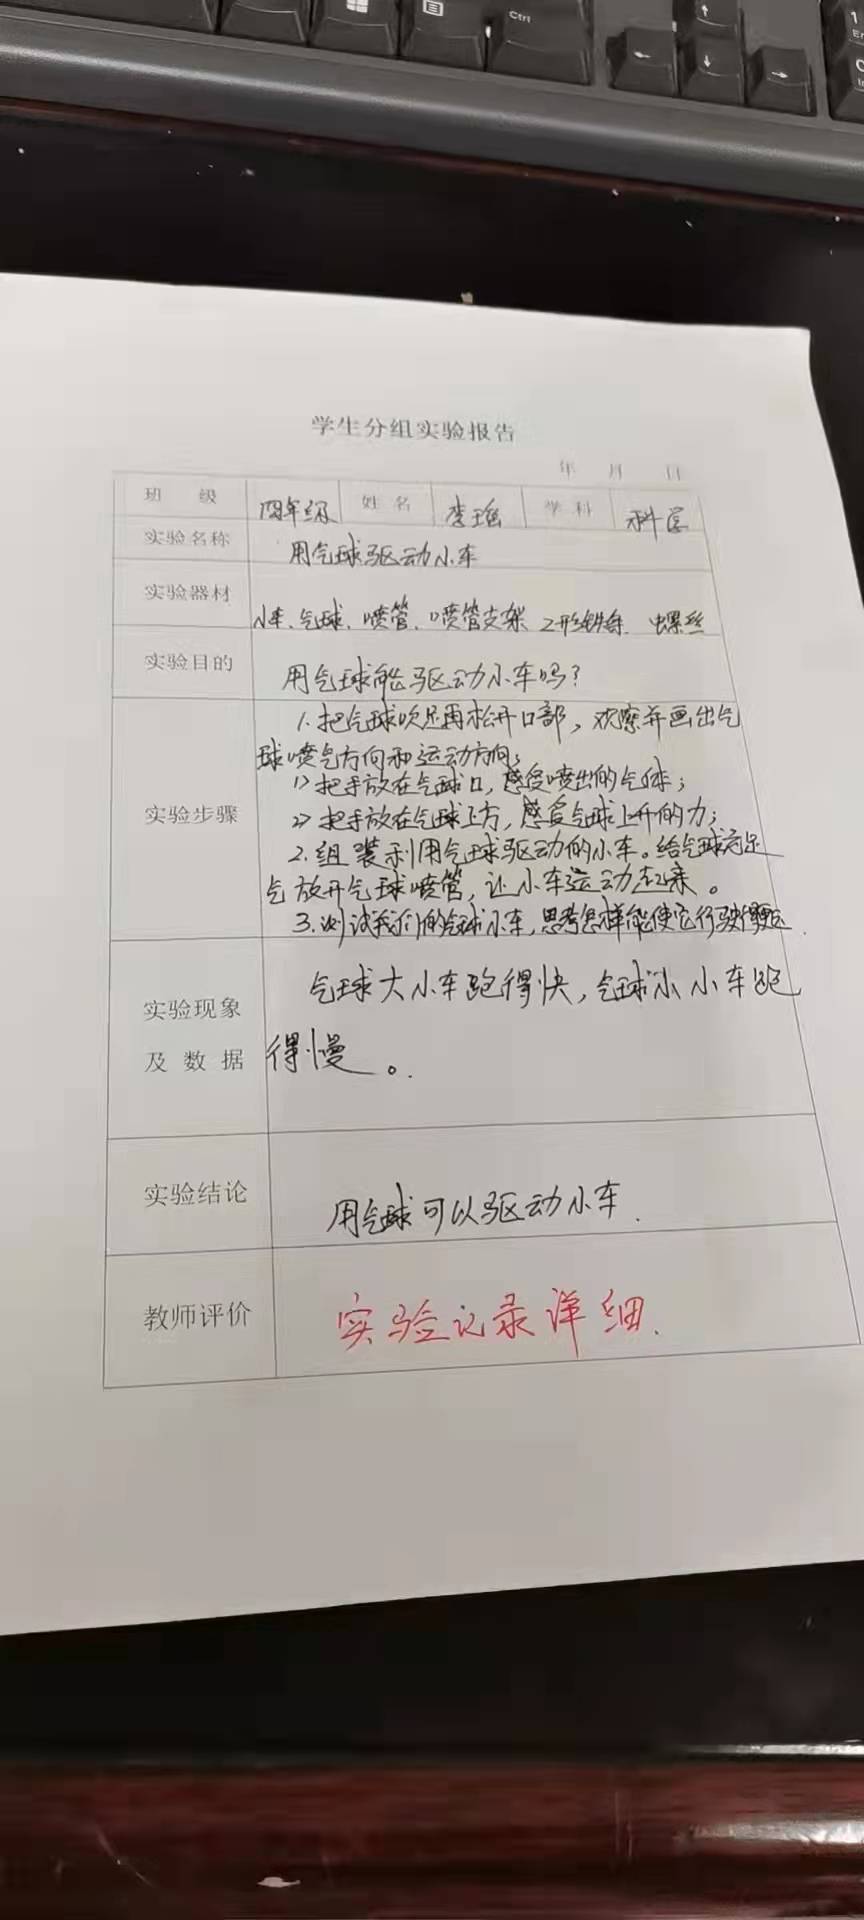 Ctrl
学生分组实验报告
年 月 日
班 级 四年级 姓 名 李瑶 学 科 科学
实验名称 用气球驱动小车
实验器材 小车、气球、喷管、喷管支架 Z形铁条 螺丝
实验目的 用气球能驱动小车吗?
实验步骤
1.把气球吹足再松开口部,观察并画出气
球喷气方向和运动方向;
1>把手放在气球口,感受喷出的气体;
2>把手放在气球上方,感受气球上升的力;
2.组装利用气球驱动的小车。给气球充足
气放开气球喷管,让小车运动起来。
3.测试我们的气球小车,思考怎样能使它行驶得更远.
实验现象
及 数 据
气球大小车跑得快,气球小小车跑
得慢。
实验结论 用气球可以驱动小车.
教师评价 实验记录详细.